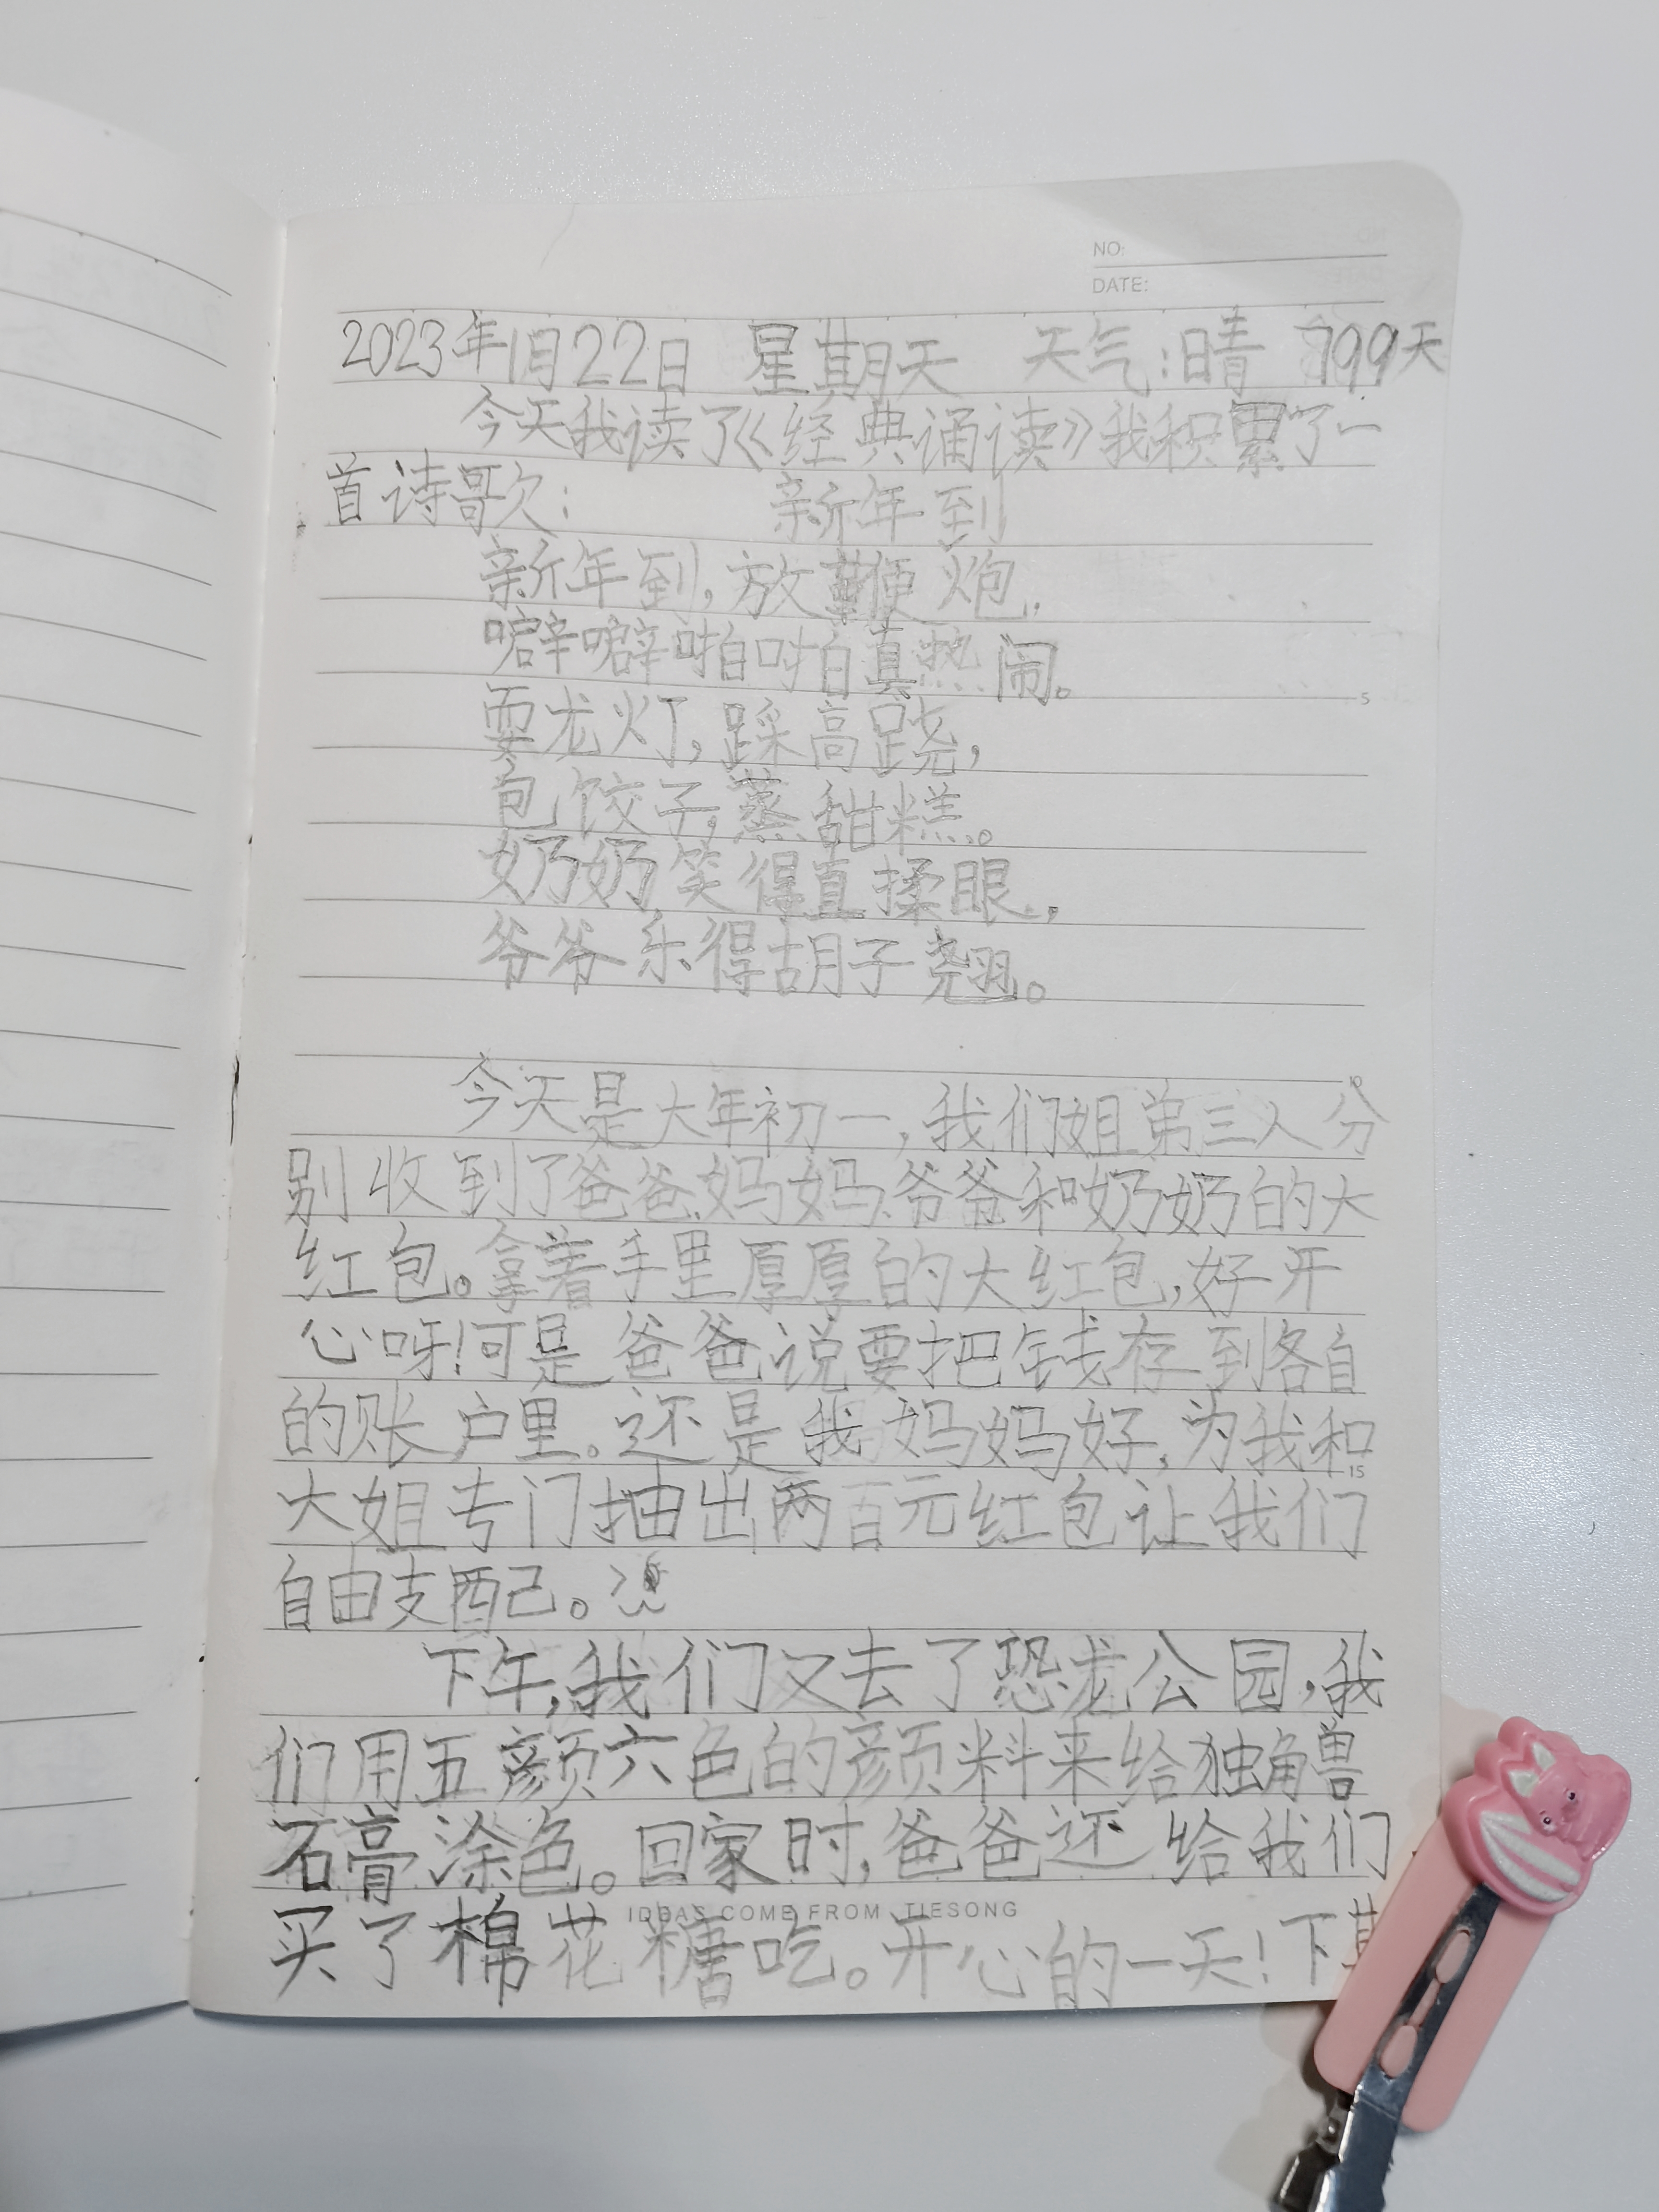 NO:
DATE:
2023年1月22日 星期天 天气:晴 799天
今天我读了《经典诵读》我积累了一
首诗歌: 新年到
新年到,放鞭炮,
噼噼啪啪真热闹。
耍龙灯,踩高跷,
包饺子,蒸甜糕。
奶奶笑得直揉眼,
爷爷乐得胡子翘。
今天是大年初一,我们姐弟三人分
别收到了爸爸、妈妈、爷爷和奶奶的大
红包。拿着手里厚厚的大红包,好开
心呀!可是爸爸说要把钱存到各自
的账户里。还是我妈妈好,为我和
大姐专门抽出两百元红包让我们
自由支配。
下午,我们又去了恐龙公园,我
们用五颜六色的颜料来给独角兽
石膏涂色。回家时,爸爸还给我们
IDEAS COME FROM TIESONG
买了棉花糖吃。开心的一天!下
5
10
15